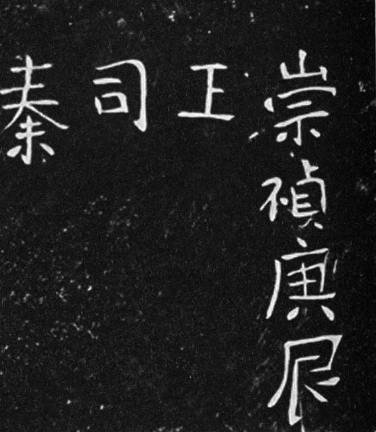 崇禎庚辰
王
司
秦